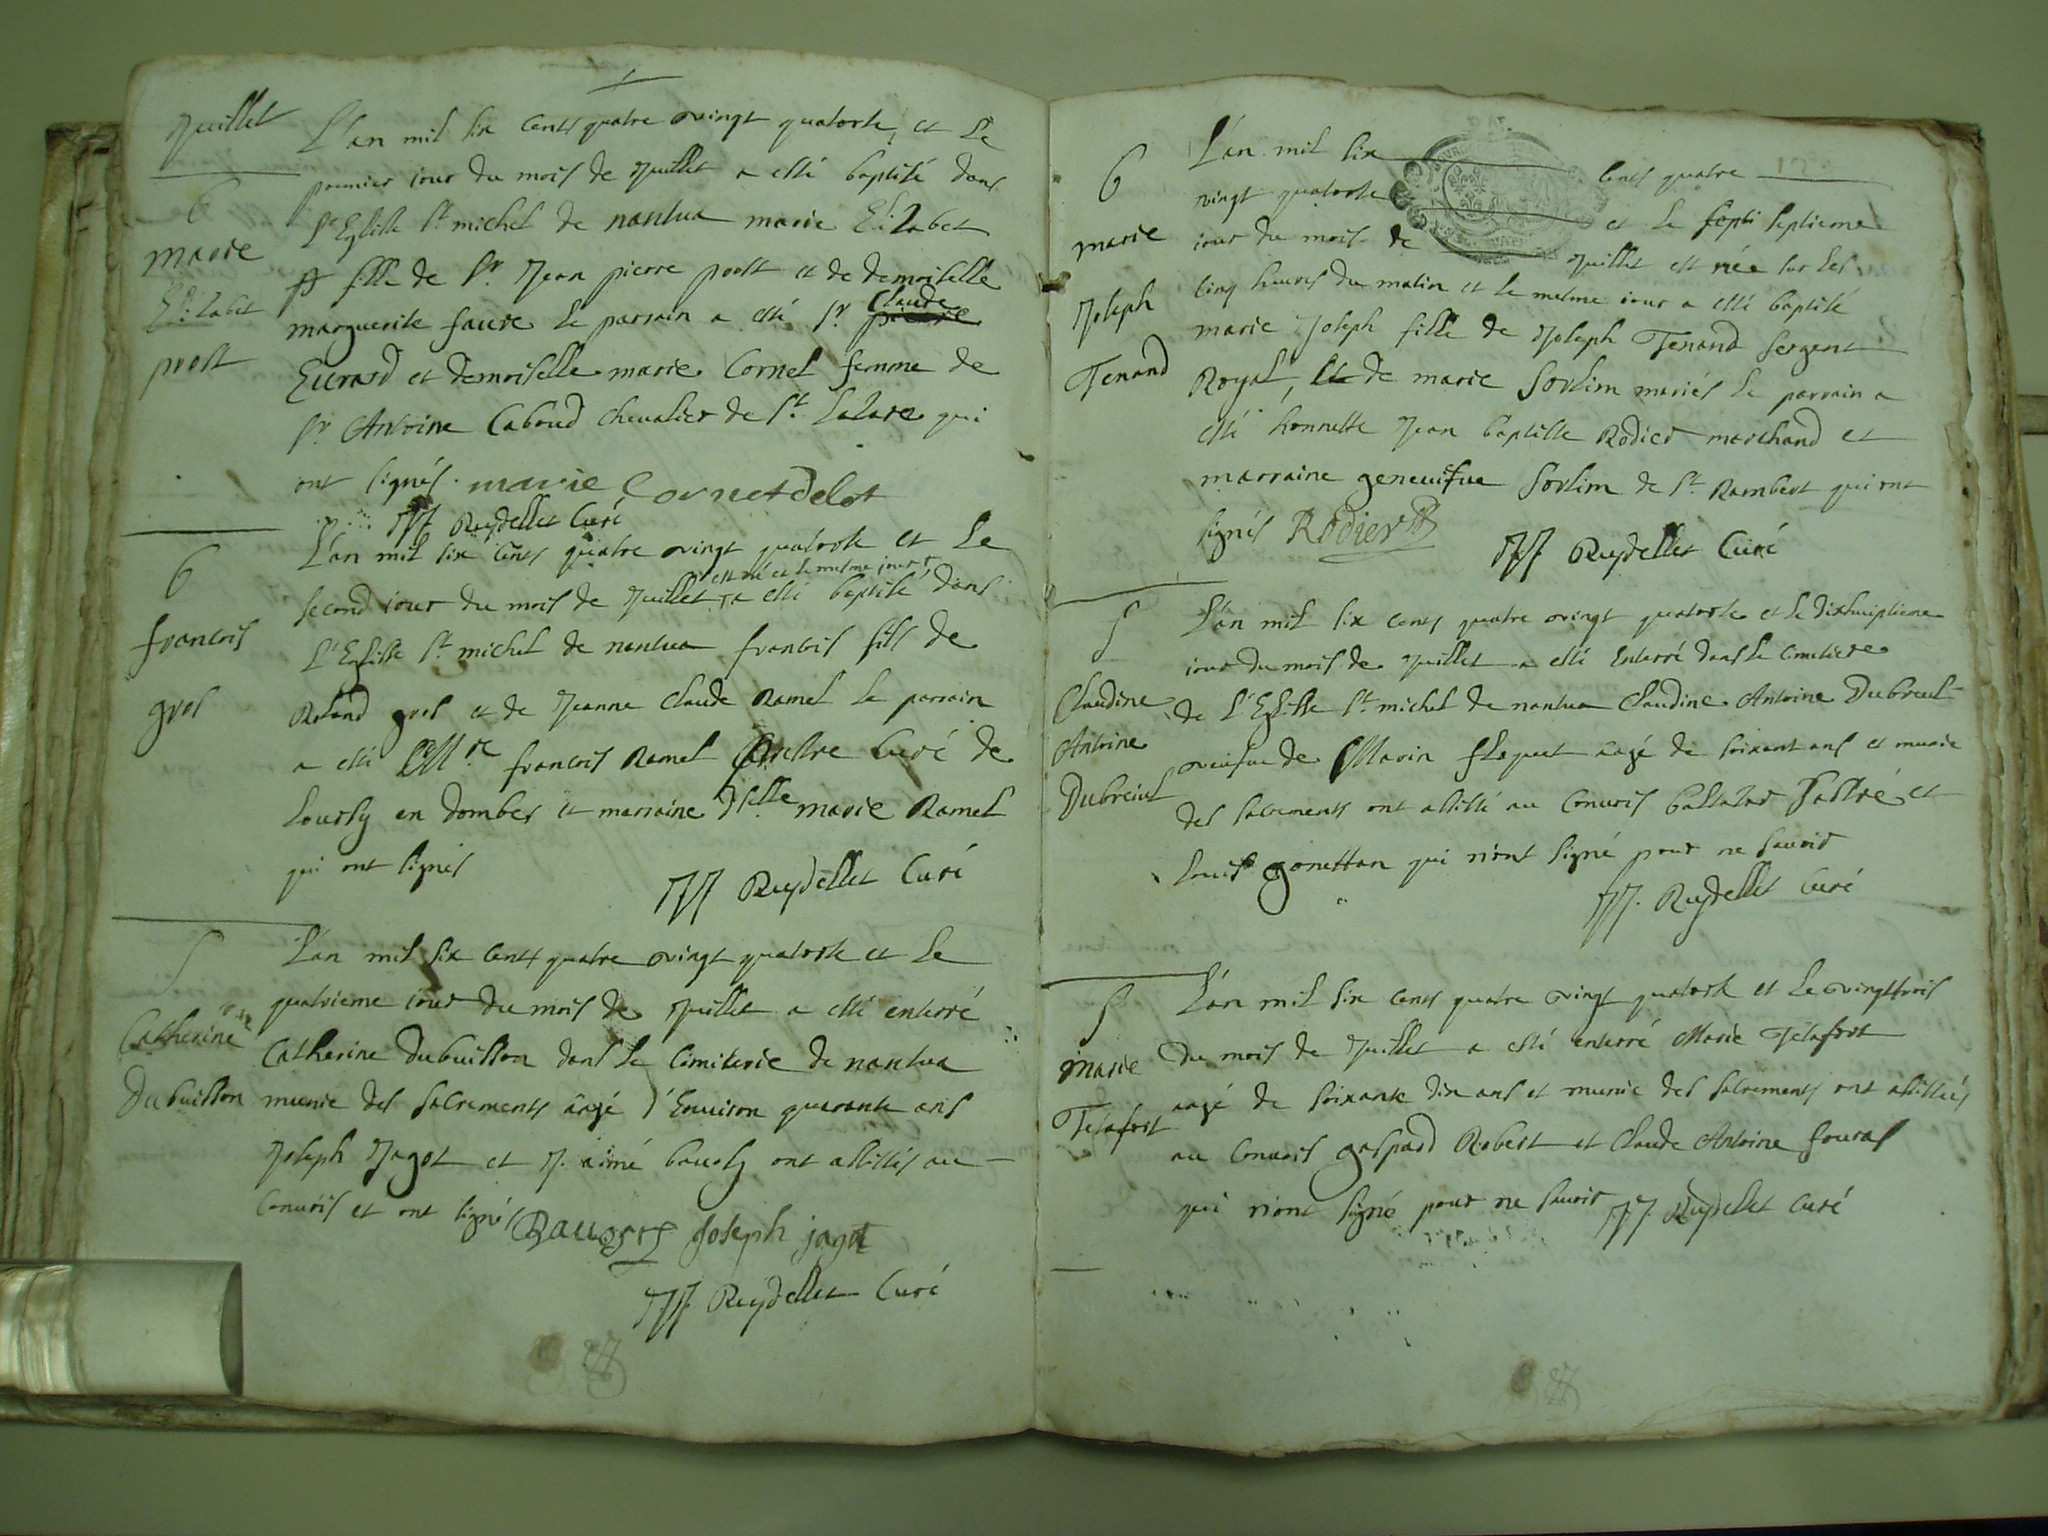 Juillet
L'an mil six cents quatre vingt quatorse, et le
premier iour du mois de Juillet a esté baptisé dans
l'Eglisse st michel de nantua marie Elizabet
fille de sr. Jean pierre prost et de demoiselle
marguerite faure le parrain a esté sr Claude
Eurard et demoiselle marie Cornet femme de
sr Antoine Caboud chevalier de st. Lazare qui
ont signés. marie Cornet delot
JJ Reydellet Curé
b
marie
Elizabet
prost
L'an mil six cents quatre vingt quatorse et le
second iour du mois de Juillet est né et le mesme jour a esté baptisé dans
l'Eglisse st michel de nantua francois fils de
Roland gros et de Jeanne Claude Ramel le parrain
a esté Mre francois Ramel prestre Curé de
en dombes et marraine dslle marie Ramel
qui ont signés
JJ Reydellet Curé
b
francois
gros
L'an mil six cents quatre vingt quatorse et le
quatrieme iour du mois de Juillet a esté enterré
Catherine Dubuisson dans le Cimiterie de nantua
munie des sacrements aagé d'Enuiron quarante ans
Joseph Jagot et J. aimé bauery ont assistés au
Conuois et ont signés Joseph jagot
JJ. Reydellet Curé
S
Catherine
Dubuisson
L'an mil six cents quatre
vingt quatorse et le septi septieme
iour du mois de Juillet est née sur les
cinq heures du matin et le mesme iour a esté baptisé
marie Joseph fille de Joseph Tenand sergent
Royal, et de marie Sorlim mariés le parrain a
esté honneste Jean baptiste Rodier marchand et
marraine geneuifue Sorlim de st. Rambert qui ont
signés Rodier
JJ Reydellet Curé
b
marie
Joseph
Tenand
L'an mil six cents quatre vingt quatorse et le dixhuiptieme
iour du mois de Juillet a esté Enterré dans le Cimetiere
de l'Eglisse st. michel de nantua Claudine Antoine Dubreul
veufue de Marin aagé de soixant ans et munie
des sacrements ont assisté au Conuois baltazar et
Louis gonettan qui n'ont signé pour ne sauoir
JJ. Reydellet Curé
S
Claudine
Antoine
Dubreiul
L'an mil six cents quatre vingt quatorse et le vingttrois
du mois de Juillet a esté enterré Marie Tetafort
aagé de soixante dix ans et munie des sacrements ont assistés
au Conuois gaspard Robert et Claude Antoine fouras
qui n'ont signé pour ne sauoir JJ Reydellet Curé
S
marie
Tetafort